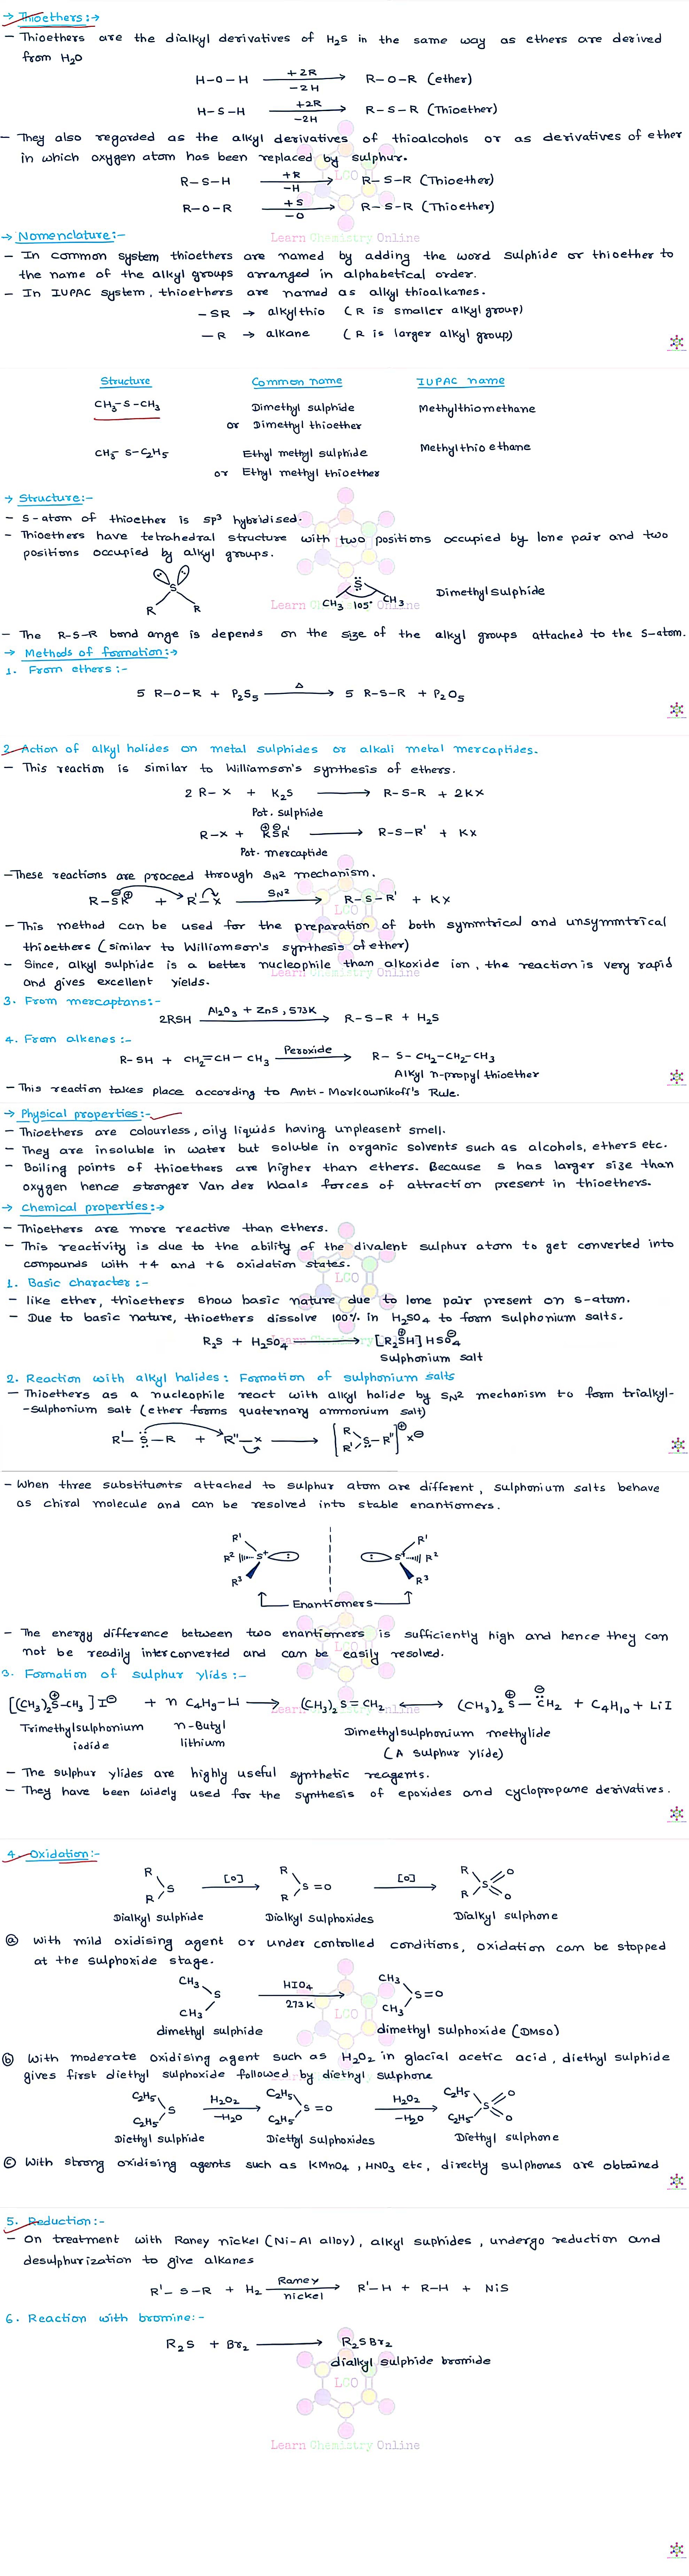 → Thioethers:→
– Thioethers are the dialkyl derivatives of H₂S in the same way as ethers are derived
from H₂O
H-O-H +2R → −2H R-O-R (ether)
H-S-H +2R → −2H R-S-R (Thioether)
– They also regarded as the alkyl derivatives of thioalcohols or as derivatives of ether
in which oxygen atom has been replaced by sulphur.
R-S-H +R → −H R-S-R (Thioether)
R-O-R +S → −O R-S-R (Thioether)
LCO
Learn Chemistry Online
→ Nomenclature:-
– In common system thioethers are named by adding the word sulphide or thioether to
the name of the alkyl groups arranged in alphabetical order.
– In IUPAC system, thioethers are named as alkyl thioalkanes.
–SR → alkylthio (R is smaller alkyl group)
–R → alkane (R is larger alkyl group)
Structure Common name IUPAC name
CH₃-S-CH₃ Dimethyl sulphide Methylthiomethane
or Dimethyl thioether
CH₃-S-C₂H₅ Ethyl methyl sulphide Methylthio ethane
or Ethyl methyl thioether
→ Structure:-
– S-atom of thioether is sp³ hybridised.
– Thioethers have tetrahedral structure with two positions occupied by lone pair and two
positions occupied by alkyl groups.
S R R
S CH₃ 105° CH₃ Dimethyl sulphide
Learn Chemistry Online
– The R-S-R bond ange is depends on the size of the alkyl groups attached to the S-atom.
→ Methods of formation:→
1. From ethers:-
5 R-O-R + P₂S₅ Δ → 5 R-S-R + P₂O₅
2. Action of alkyl halides on metal sulphides or alkali metal mercaptides.
– This reaction is similar to Williamson's synthesis of ethers.
2 R-X + K₂S → R-S-R + 2KX
Pot. sulphide
R-X + K⊕S⊖R' → R-S-R' + KX
Pot. mercaptide
–These reactions are proceed through SN² mechanism.
R-S⊖K⊕ + R'-X SN² → R-S-R' + KX
LCO
– This method can be used for the preparation of both symmtrical and unsymmtrical
thioethers (similar to Williamson's synthesis of ether)
– Since, alkyl sulphide is a better nucleophile than alkoxide ion, the reaction is very rapid
and gives excellent yields.
Learn Chemistry Online
3. From mercaptans:-
2RSH Al₂O₃ + ZnS, 573K → R-S-R + H₂S
4. From alkenes:-
R-SH + CH₂=CH-CH₃ Peroxide → R-S-CH₂-CH₂-CH₃
Alkyl n-propyl thioether
– This reaction takes place according to Anti-Markownikoff's Rule.
→ Physical properties:-
– Thioethers are colourless, oily liquids having unpleasent smell.
– They are insoluble in water but soluble in organic solvents such as alcohols, ethers etc.
– Boiling points of thioethers are higher than ethers. Because S has larger size than
oxygen hence stronger Van der Waals forces of attraction present in thioethers.
→ Chemical properties:→
– Thioethers are more reactive than ethers.
– This reactivity is due to the ability of the divalent sulphur atom to get converted into
compounds with +4 and +6 oxidation states.
LCO
1. Basic character:-
– like ether, thioethers show basic nature due to lone pair present on S-atom.
– Due to basic nature, thioethers dissolve 100% in H₂SO₄ to form sulphonium salts.
R₂S + H₂SO₄ → [R₂S⊕H]HSO₄⊖
Learn Chemistry Online
Sulphonium salt
2. Reaction with alkyl halides: Formation of sulphonium salts
– Thioethers as a nucleophile react with alkyl halide by SN² mechanism to form trialkyl-
-sulphonium salt (ether forms quaternary ammonium salt)
R'-S-R + R''-X → [R R' S-R'']⊕ X⊖
– When three substituents attached to sulphur atom are different, sulphonium salts behave
as chiral molecule and can be resolved into stable enantiomers.
R¹ R² R³ S⁺ S⁺ R¹ R² R³
Enantiomers
– The energy difference between two enantiomers is sufficiently high and hence they can
not be readily interconverted and can be easily resolved.
LCO
3. Formation of sulphur ylids:-
[(CH₃)₂S⊕-CH₃]I⊖ + n C₄H₉-Li → (CH₃)₂S=CH₂ ↔ (CH₃)₂S⊕-C⊖H₂ + C₄H₁₀ + LiI
Trimethylsulphonium iodide n-Butyl lithium Dimethylsulphonium methylide
(A sulphur ylide)
Learn Chemistry Online
– The sulphur ylides are highly useful synthetic reagents.
– They have been widely used for the synthesis of epoxides and cyclopropane derivatives.
4. Oxidation:-
R R S [O] → R R S=O [O] → R R S O O
Dialkyl sulphide Dialkyl sulphoxides Dialkyl sulphone
ⓐ With mild oxidising agent or under controlled conditions, oxidation can be stopped
at the sulphoxide stage.
CH₃ CH₃ S HIO₄ → 273K CH₃ CH₃ S=O
LCO
dimethyl sulphide dimethyl sulphoxide (DMSO)
ⓑ With moderate oxidising agent such as H₂O₂ in glacial acetic acid, diethyl sulphide
gives first diethyl sulphoxide followed by diethyl sulphone
Learn Chemistry Online
C₂H₅ C₂H₅ S H₂O₂ → −H₂O C₂H₅ C₂H₅ S=O H₂O₂ → −H₂O C₂H₅ C₂H₅ S O O
Diethyl sulphide Diethyl sulphoxides Diethyl sulphone
ⓒ With strong oxidising agents such as KMnO₄, HNO₃ etc, directly sulphones are obtained
5. Reduction:-
– On treatment with Raney nickel (Ni-Al alloy), alkyl suphides, undergo reduction and
desulphurization to give alkanes
R'-S-R + H₂ Raney nickel → R'-H + R-H + NiS
6. Reaction with bromine:-
R₂S + Br₂ → R₂SBr₂
dialkyl sulphide bromide
LCO
Learn Chemistry Online